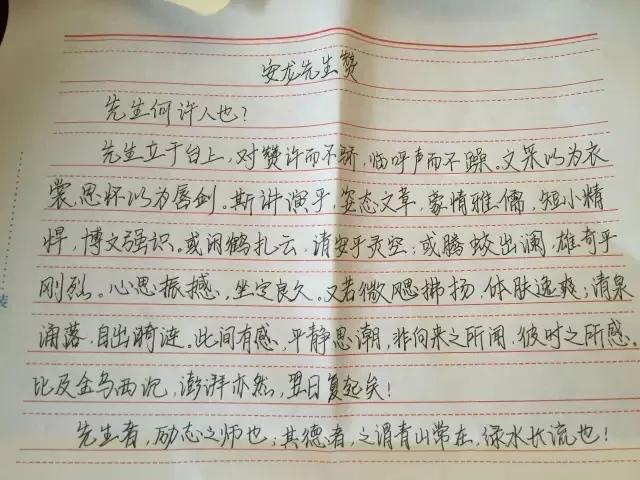 安龙先生赞
先生何许人也？
先生立于台上，对赞许而不骄，临呼声而不躁。文采以为衣
裳，思怀以为唇剑。斯讲演乎，姿态文章，豪情雅儒，短小精
悍，博文强识。或闲鹤扎云，清安乎灵空；或腾蛟出澜，雄奇乎
刚烈。心思振撼，坐定良久。又若微飔拂扬，体肤逸爽；清泉
涌落，自出漪涟。此间有感，平静思潮，非向来之所闻，彼时之所感。
比及金乌西沉，澎湃亦然，翌日复起矣！
先生者，励志之师也；其德者，之谓青山常在，绿水长流也！